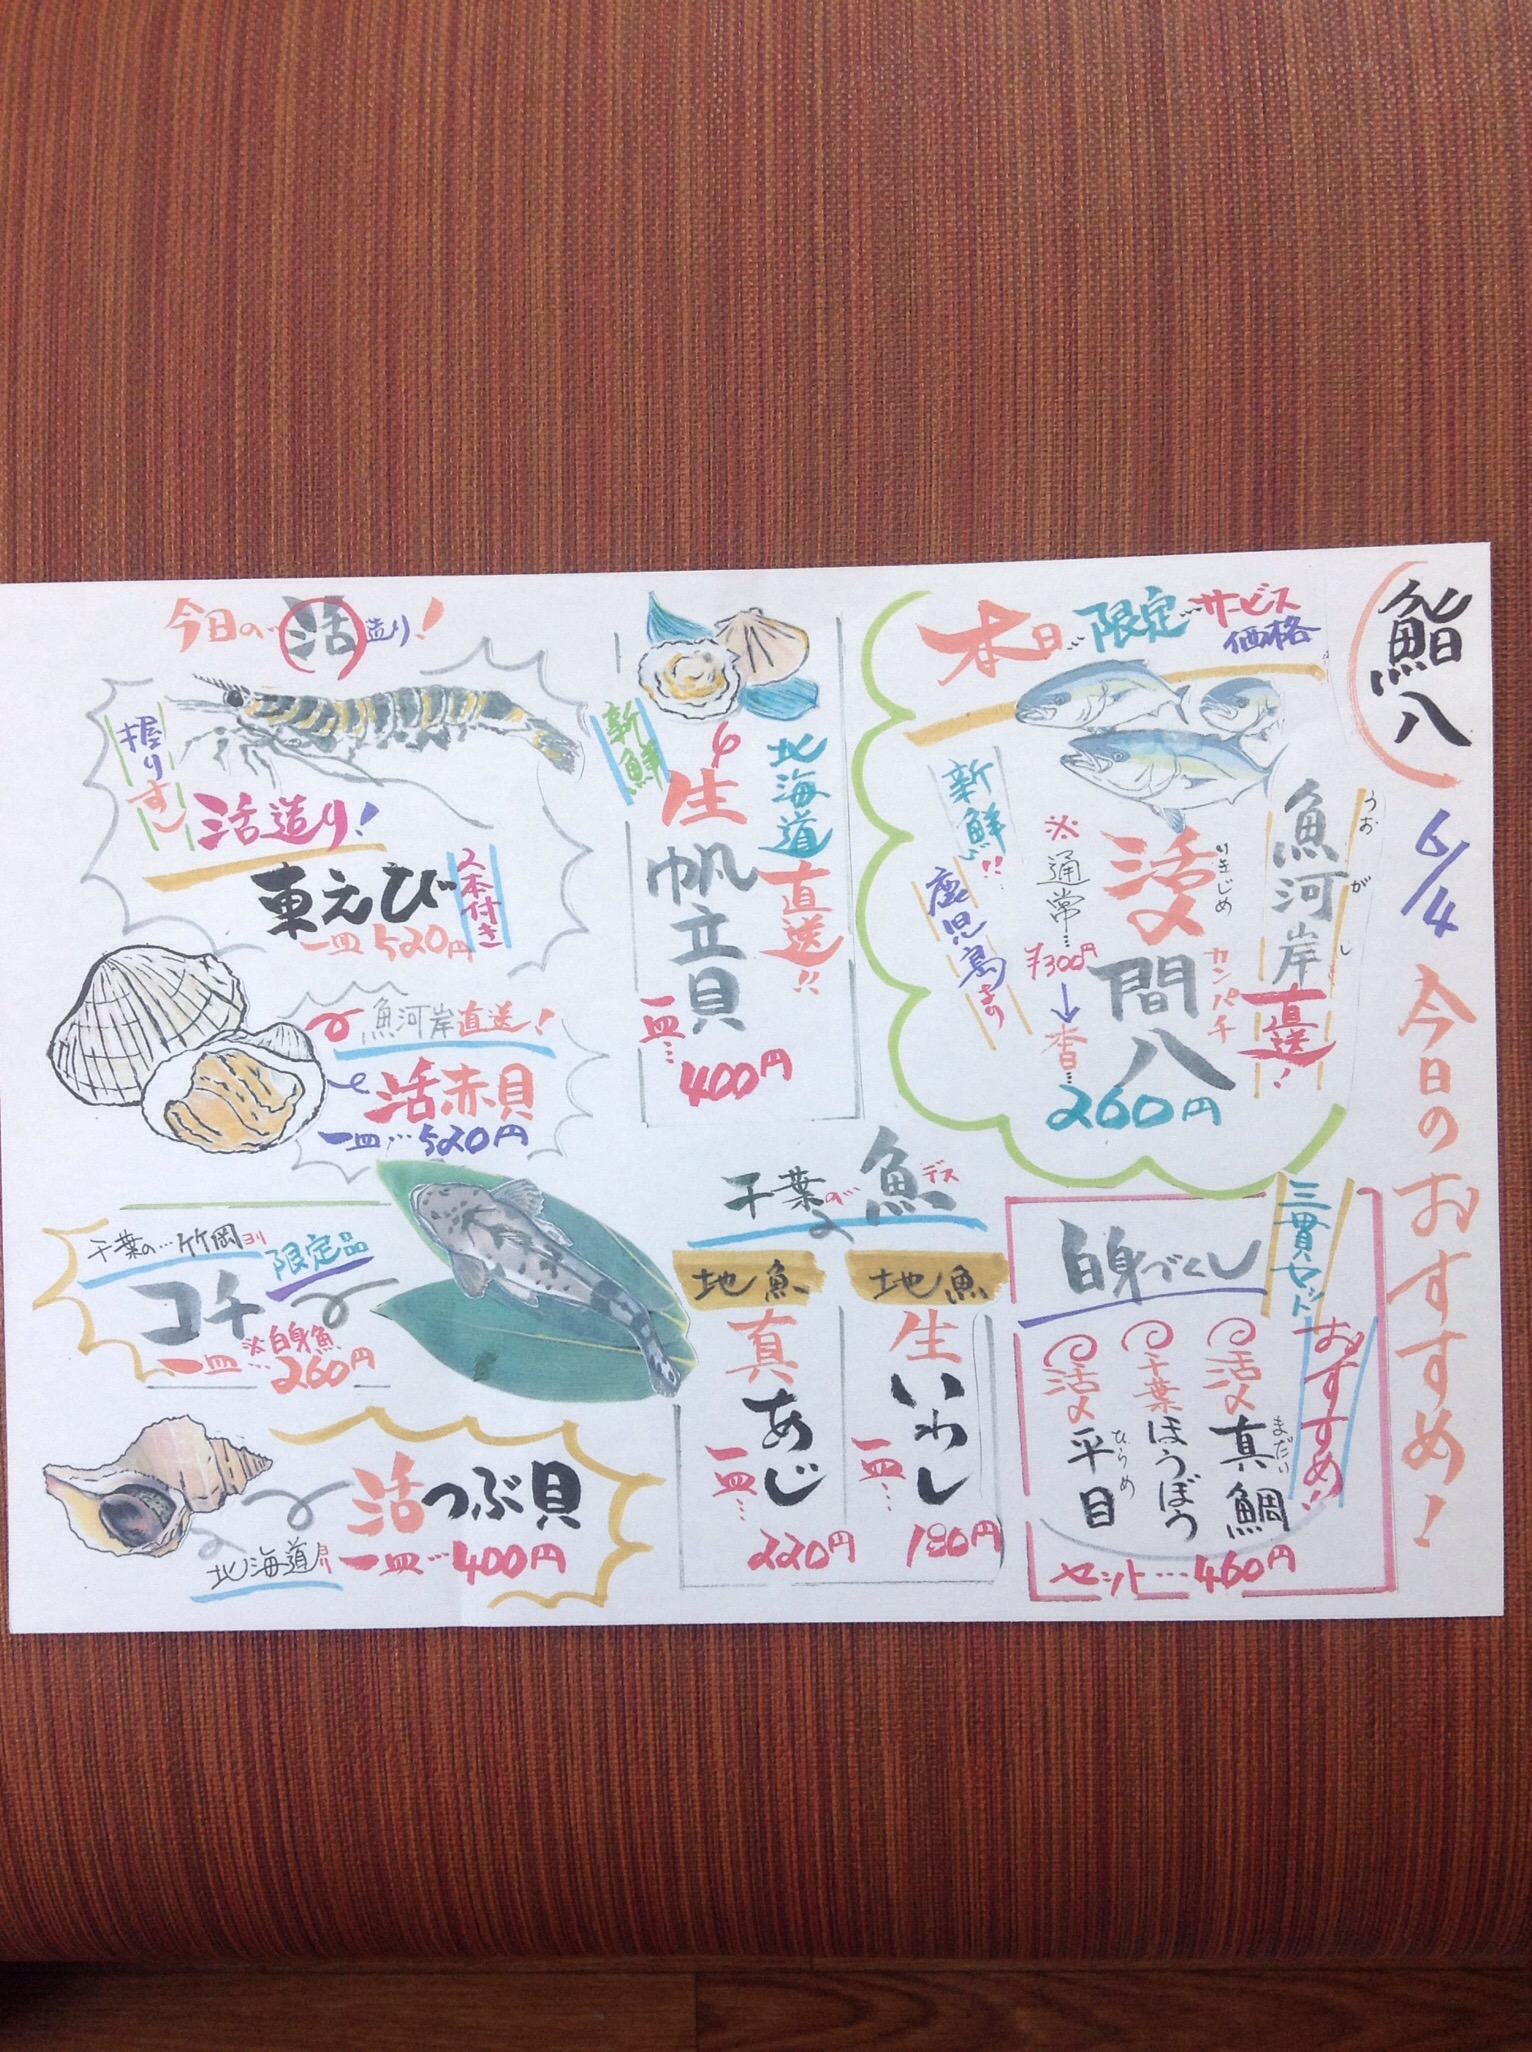 鮨八
6/4
今日のおすすめ！
本日…限定…サービス価格
魚河岸直送！
うおがし
活〆
いきじめ
間八
カンパチ
※通常…
¥300円
↓
本日…
260円
新鮮!!
鹿児島より
三貫セット
おすすめ!!
白身づくし
活〆真鯛
まだい
千葉ほうぼう
活〆平目
ひらめ
セット…460円
北海道直送!!
新鮮
生帆立貝
一皿…
400円
千葉の…魚デス
地魚
生いわし
一皿…
180円
地魚
真あじ
一皿…
220円
今日の…活造り！
握りす
活造り！
車えび
2本付き
一皿520円
魚河岸直送！
活赤貝
一皿…520円
千葉の…竹岡ヨリ
限定品
コチ
※白身魚
一皿…260円
活つぶ貝
北海道ヨリ
一皿…400円